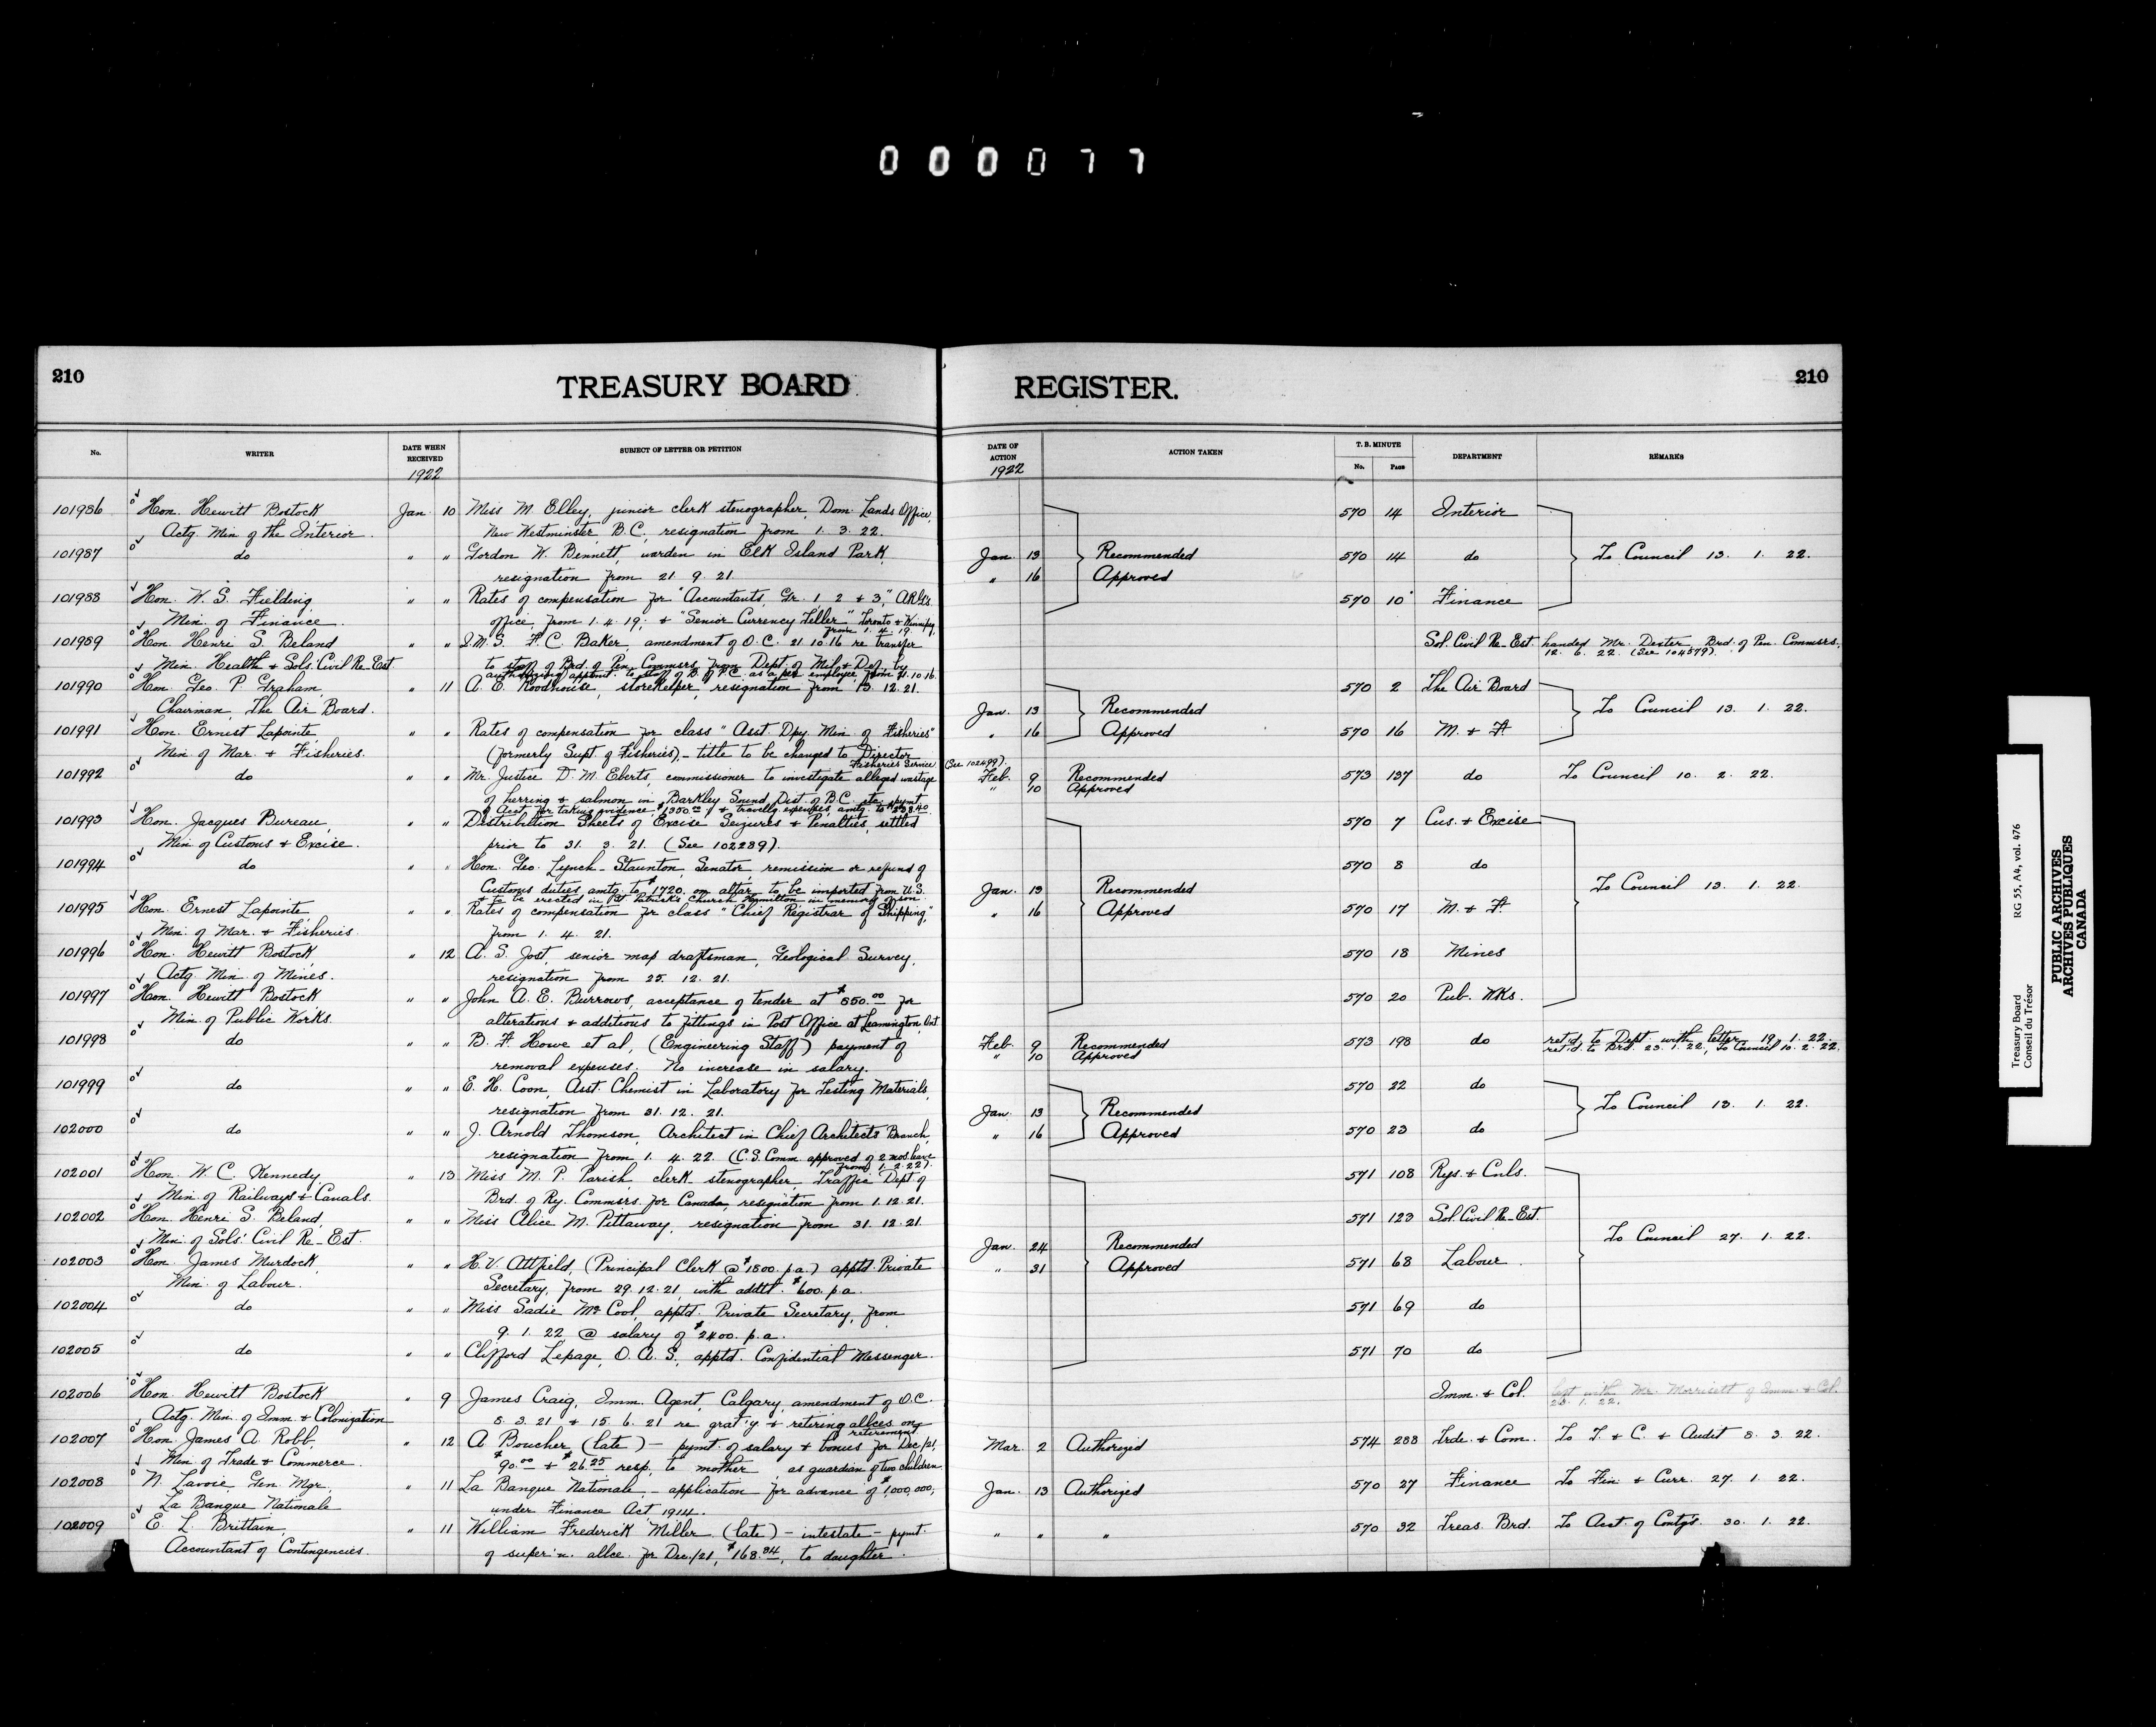 000077
210
TREASURY BOARD
REGISTER.
210
No.
WRITER
DATE WHEN RECEIVED
1922
SUBJECT OF LETTER OR PETITION
DATE OF ACTION
1922
ACTION TAKEN
T. B. MINUTE
No.
Page
DEPARTMENT
REMARKS
101986 Hon. Hewitt Bostock Jan. 10 Miss M. Elley, junior clerk stenographer, Dom. Lands Office, 570 14 Interior
Actg. Min. of the Interior. New Westminster, B.C., resignation from 1. 3. 22.
101987 do " " Gordon W. Bennett, warden in Elk Island Park, Jan. 13 Recommended 570 14 do To Council 13. 1. 22.
resignation from 21. 9. 21. " 16 Approved
101988 Hon. W. S. Fielding, " " Rates of compensation for "Accountants, Gr. 1 2 + 3," 570 10 Finance
Min. of Finance. office, from 1. 4. 19; + "Senior Currency Teller" Toronto + Winnipeg,
from 1. 4. 19.
101989 Hon. Henri S. Beland " " F. C. Baker, amendment of O.C. 21.10.16 re transfer Sol. Civil Re-Est. handed Mr. Dexter, Brd. of Pen. Commsrs.,
12. 6. 22. (See 104579).
Min. Health + Sols. Civil Re-Est. to staff of Brd. of Pen. Commsrs. from Dept. of Mil. + Def., by
authorizing appmt. to staff of B. of P.C. as a employee, from 21.10.16.
101990 Hon. Geo. P. Graham, " 11 A. E. Roodhouse, storekeeper, resignation from 13. 12. 21. 570 2 The Air Board
Chairman, The Air Board. Jan. 13 Recommended To Council 13. 1. 22.
101991 Hon. Ernest Lapointe, " " Rates of compensation for class "Asst. Dpy. Min. of Fisheries" " 16 Approved 570 16 M. + F.
Min. of Mar. + Fisheries. (formerly Supt. of Fisheries), - title to be changed to Director
Fisheries Service (See 102499).
101992 do " " Mr. Justice D. M. Eberts, commissioner to investigate alleged wastage Feb. 9 Recommended 573 137 do To Council 10. 2. 22.
" 10 Approved
of herring + salmon in Barkley Sound Dist. of B.C. etc., pymt.
of Acct. for taking evidence, $1350.00 + travellg. expenses, amtg. to
101993 Hon. Jacques Bureau, " " Distribution Sheets of Excise Seizures + Penalties, settled 570 7 Cus. + Excise
Min. of Customs + Excise. prior to 31. 3. 21. (See 102289).
101994 do " " Hon. Geo. Lynch-Staunton, Senator, remission or refund of 570 8 do
Customs duties, amtg. to $1720. on altar to be imported from U.S. Jan. 13 Recommended To Council 13. 1. 22.
+ to be erected in St. Patrick's Church Hamilton, in memory of son.
101995 Hon. Ernest Lapointe, " " Rates of compensation for class "Chief Registrar of Shipping," " 16 Approved 570 17 M. + F.
Min. of Mar. + Fisheries. from 1. 4. 21.
101996 Hon. Hewitt Bostock, " 12 A. S. Jost, senior map draftsman, Geological Survey, 570 18 Mines
Actg. Min. of Mines. resignation from 25. 12. 21.
101997 Hon. Hewitt Bostock " " John A. E. Burrows, acceptance of tender at $550.00 for 570 20 Pub. Wks.
Min. of Public Works. alterations + additions to fittings in Post Office at Leamington, Ont.
101998 do " " B. F. Howe et al, (Engineering Staff) payment of Feb. 9 Recommended 573 198 do ret'd. to Dept. with letter 19. 1. 22.
" 10 Approved ret'd. to Brd. 23. 1. 22, To Council 10. 2. 22.
removal expenses. No increase in salary.
101999 do " " E. H. Coon, Asst. Chemist in Laboratory for Testing Materials, 570 22 do
resignation from 31. 12. 21. Jan. 13 Recommended To Council 13. 1. 22.
102000 do " " J. Arnold Thomson, Architect in Chief Architects Branch, " 16 Approved 570 23 do
resignation from 1. 4. 22. (C.S. Comm. approved of 2 mos. leave
from 1. 2. 22).
102001 Hon. W. C. Kennedy, " 13 Miss M. P. Parish, clerk stenographer, Traffic Dept. of 571 108 Rys. + Cnls.
Min. of Railways + Canals. Brd. of Ry. Commsrs. for Canada, resignation from 1. 12. 21.
102002 Hon. Henri S. Beland, " " Miss Alice M. Pittaway, resignation from 31. 12. 21. 571 123 Sol. Civil Re-Est.
Min. of Sols. Civil Re-Est. Jan. 24 Recommended To Council 27. 1. 22.
102003 Hon. James Murdock, " " H. V. Attfield, (Principal Clerk @ $1800. p.a.) apptd. Private " 31 Approved 571 68 Labour
Min. of Labour. Secretary, from 29. 12. 21, with addtl. $600. p.a.
102004 do " " Miss Sadie McCool, apptd. Private Secretary, from 571 69 do
9. 1. 22 @ salary of $2400. p.a.
102005 do " " Clifford Lepage, O.A.S., apptd. Confidential Messenger. 571 70 do
102006 Hon. Hewitt Bostock " 9 James Craig, Imm. Agent, Calgary, amendment of O.C. Imm. + Col. left with Mr. Morrisett of Imm. + Col.
23. 1. 22.
Actg. Min. of Imm. + Colonization 5. 3. 21 + 15. 6. 21 re grat'y + retiring allces on
retirement
102007 Hon. James A. Robb, " 12 A. Boucher (late) - pymt. of salary + bonus for Dec./21, Mar. 2 Authorized 574 288 Trde. + Com. To T. + C. + Audit 8. 3. 22.
Min. of Trade + Commerce. $90.00 + $26.25 resp. to mother, as guardian of two children
102008 N. Lavoie, Gen. Mgr., " 11 La Banque Nationale, - application for advance of $1,000,000, Jan. 13 Authorized 570 27 Finance To Fin. + Curr. 27. 1. 22.
La Banque Nationale under Finance Act, 1914.
102009 E. L. Brittain, " 11 William Frederick Miller (late) - intestate - pymt. " " " 570 32 Treas. Brd. To Acct. of Contg's. 30. 1. 22.
Accountant of Contingencies. of super'n. allce. for Dec./21, $168.34, to daughter.
Treasury Board RG 55, A4, vol. 476
Conseil du Trésor
PUBLIC ARCHIVES
ARCHIVES PUBLIQUES
CANADA